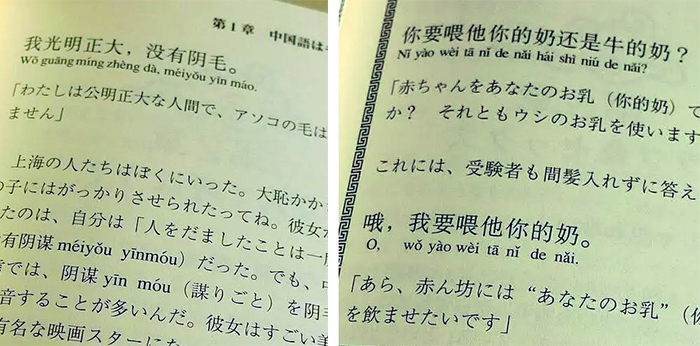 第1章 中国語は
我光明正大，没有阴毛。
Wǒ guāng míng zhèng dà, méiyǒu yīn máo.
「わたしは公明正大な人間で、アソコの毛は
ません」
上海の人たちはぼくにいった。大恥かか
の子にはがっかりさせられたってね。彼女が
たのは、自分は「人をだましたことは一
有阴谋 méiyǒu yīnmóu）だった。でも、中
では、阴谋 yīn móu（謀りごと）を阴毛
音することが多いんだ。彼女はすごい美
有名な映画スターにな
你要喂他你的奶还是牛的奶？
Nǐ yào wèi tā nǐ de nǎi hái shì niú de nǎi?
「赤ちゃんをあなたのお乳（你的奶）で
か？ それともウシのお乳を使います
これには、受験者も間髪入れずに答え
哦，我要喂他你的奶。
O, wǒ yào wèi tā nǐ de nǎi.
「あら、赤ん坊には“あなたのお乳”（你
を飲ませたいです」